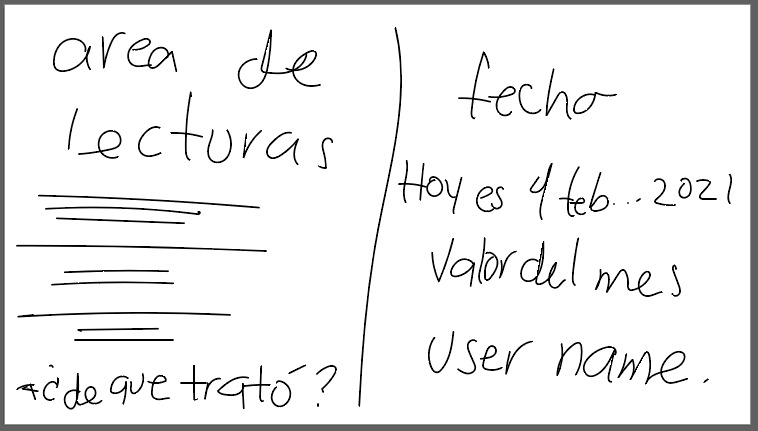 area de
Lecturas
¿de que trató?
fecha
Hoy es 4 feb... 2021
Valor del mes
User name.